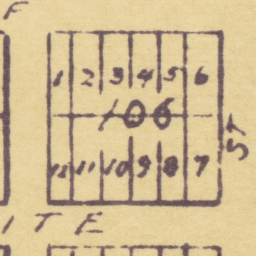 F
1 2 3 4 5 6
106
ST
12 11 10 9 8 7
ITE